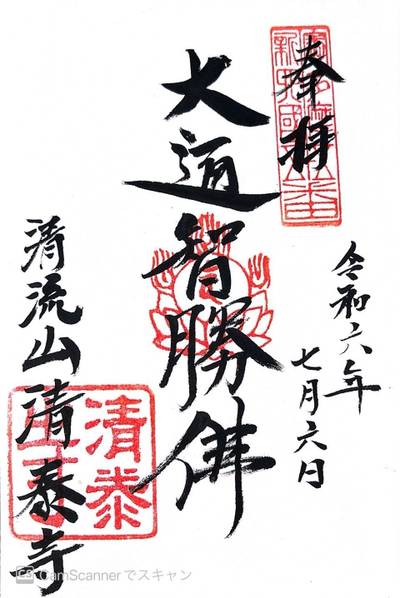 奉拝
大通智勝佛
令和六年
七月六日
清流山清泰寺
清泰
CamScannerでスキャン